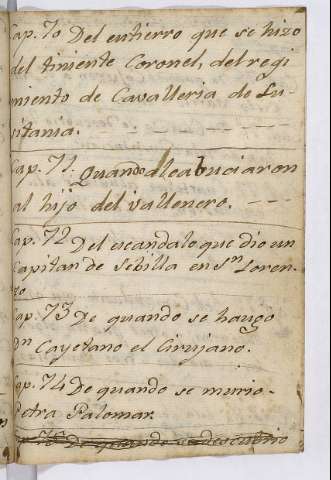 Cap. 70 Del entierro que se hizo
del tiniente Coronel, del regi
miento de Cavalleria de Lu-
sitania.
Cap. 71. Quando alcabuciaron
al hijo del vallenero.
Cap. 72 Del escandalo que dio un
Capitan de Sebilla en Sn Loren-
zo
Cap. 73 De quando se haugo
Dn Cayetano el Cirujano.
Cap. 74 De quando se murio
Petra Palomar.
Cap. 75 De quando se descubrio